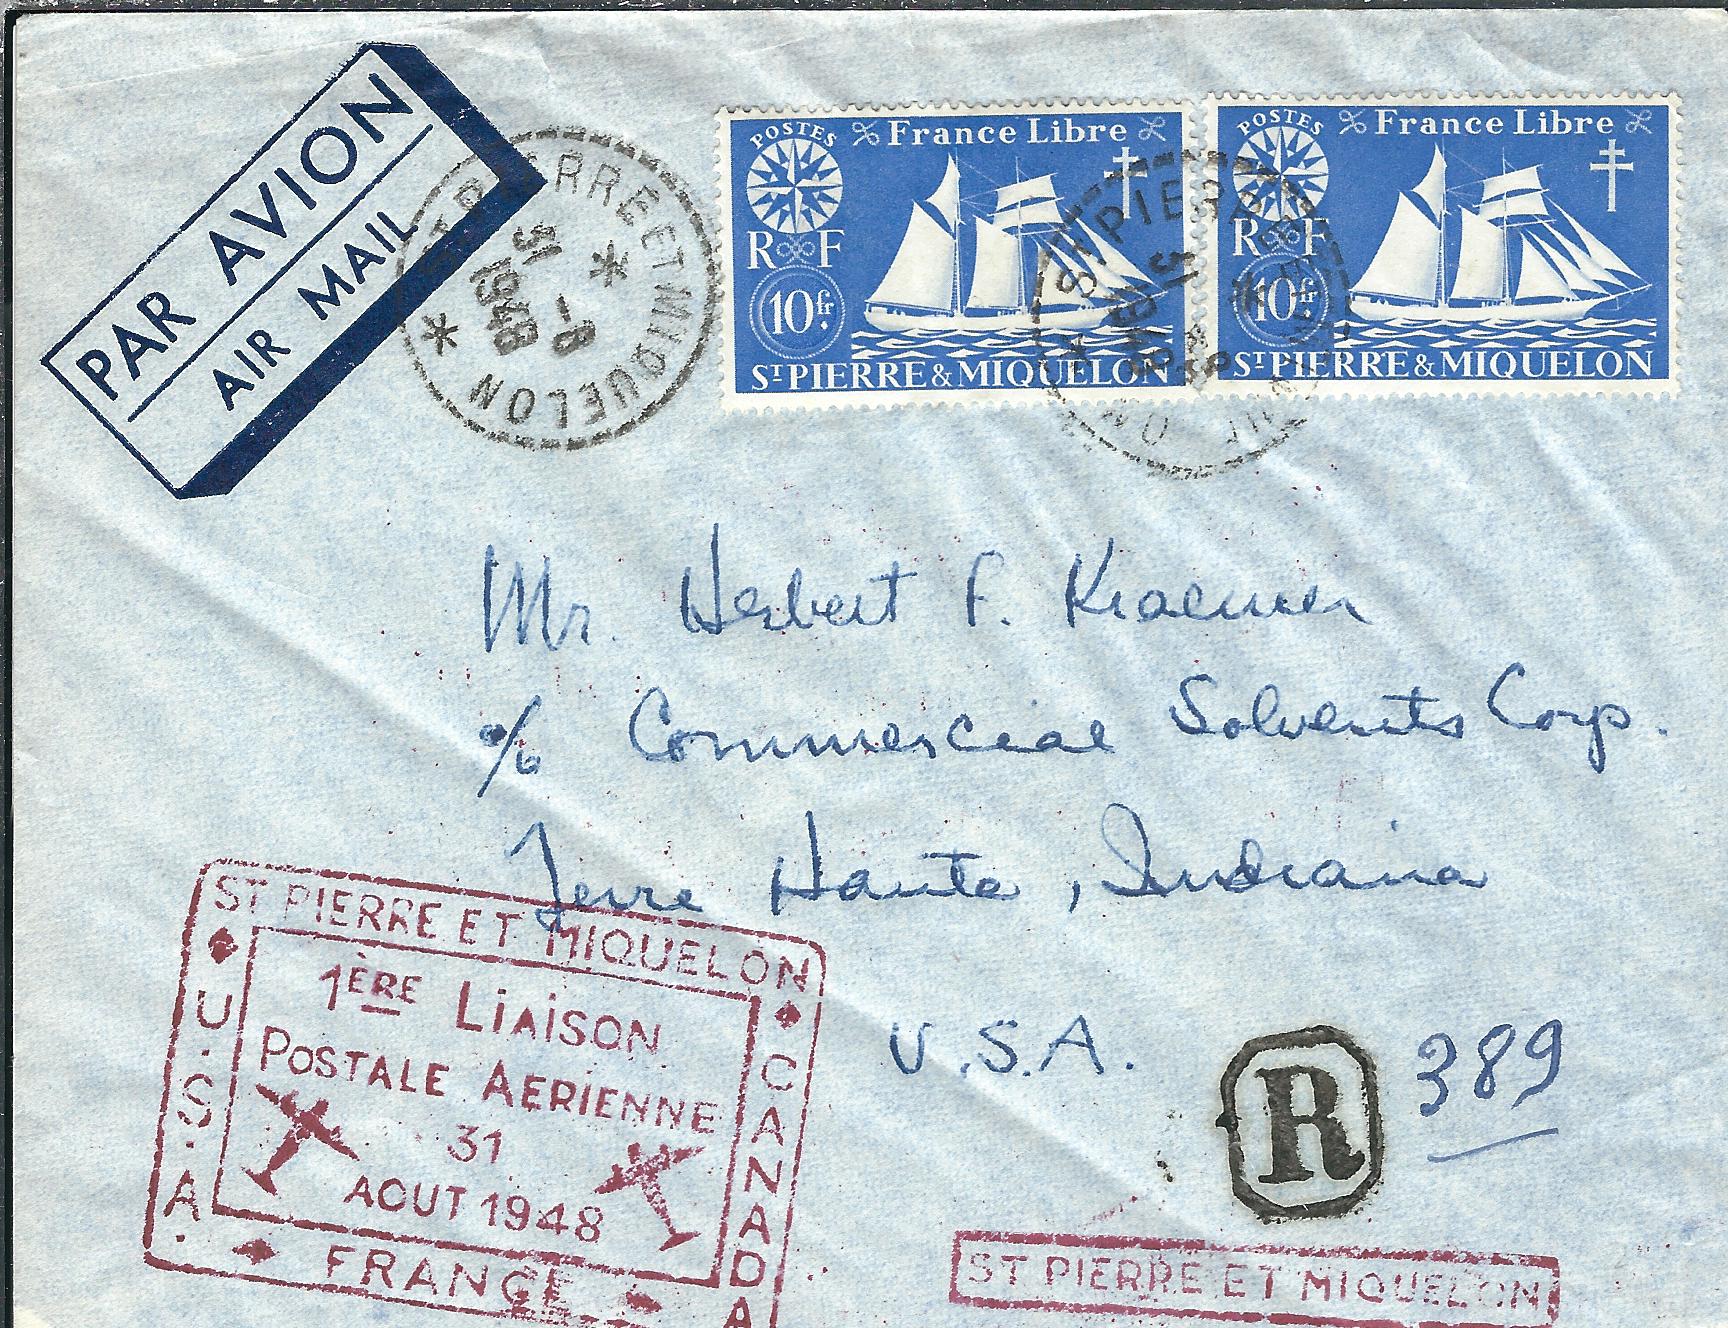 PAR AVION
AIR MAIL
ST PIERRE ET MIQUELON
31
-8
1948
POSTES
France Libre
RF
10fr.
ST PIERRE & MIQUELON
POSTES
France Libre
RF
10fr
ST PIERRE & MIQUELON
ST PIERRE
Mr. Herbert F. Kraemer
c/o Commercial Solvents Corp.
Terre Haute, Indiana
U.S.A.
R 389
ST PIERRE ET MIQUELON
U.S.A.
1ÈRE LIAISON
POSTALE AERIENNE
31
AOUT 1948
CANADA
FRANCE
ST PIERRE ET MIQUELON